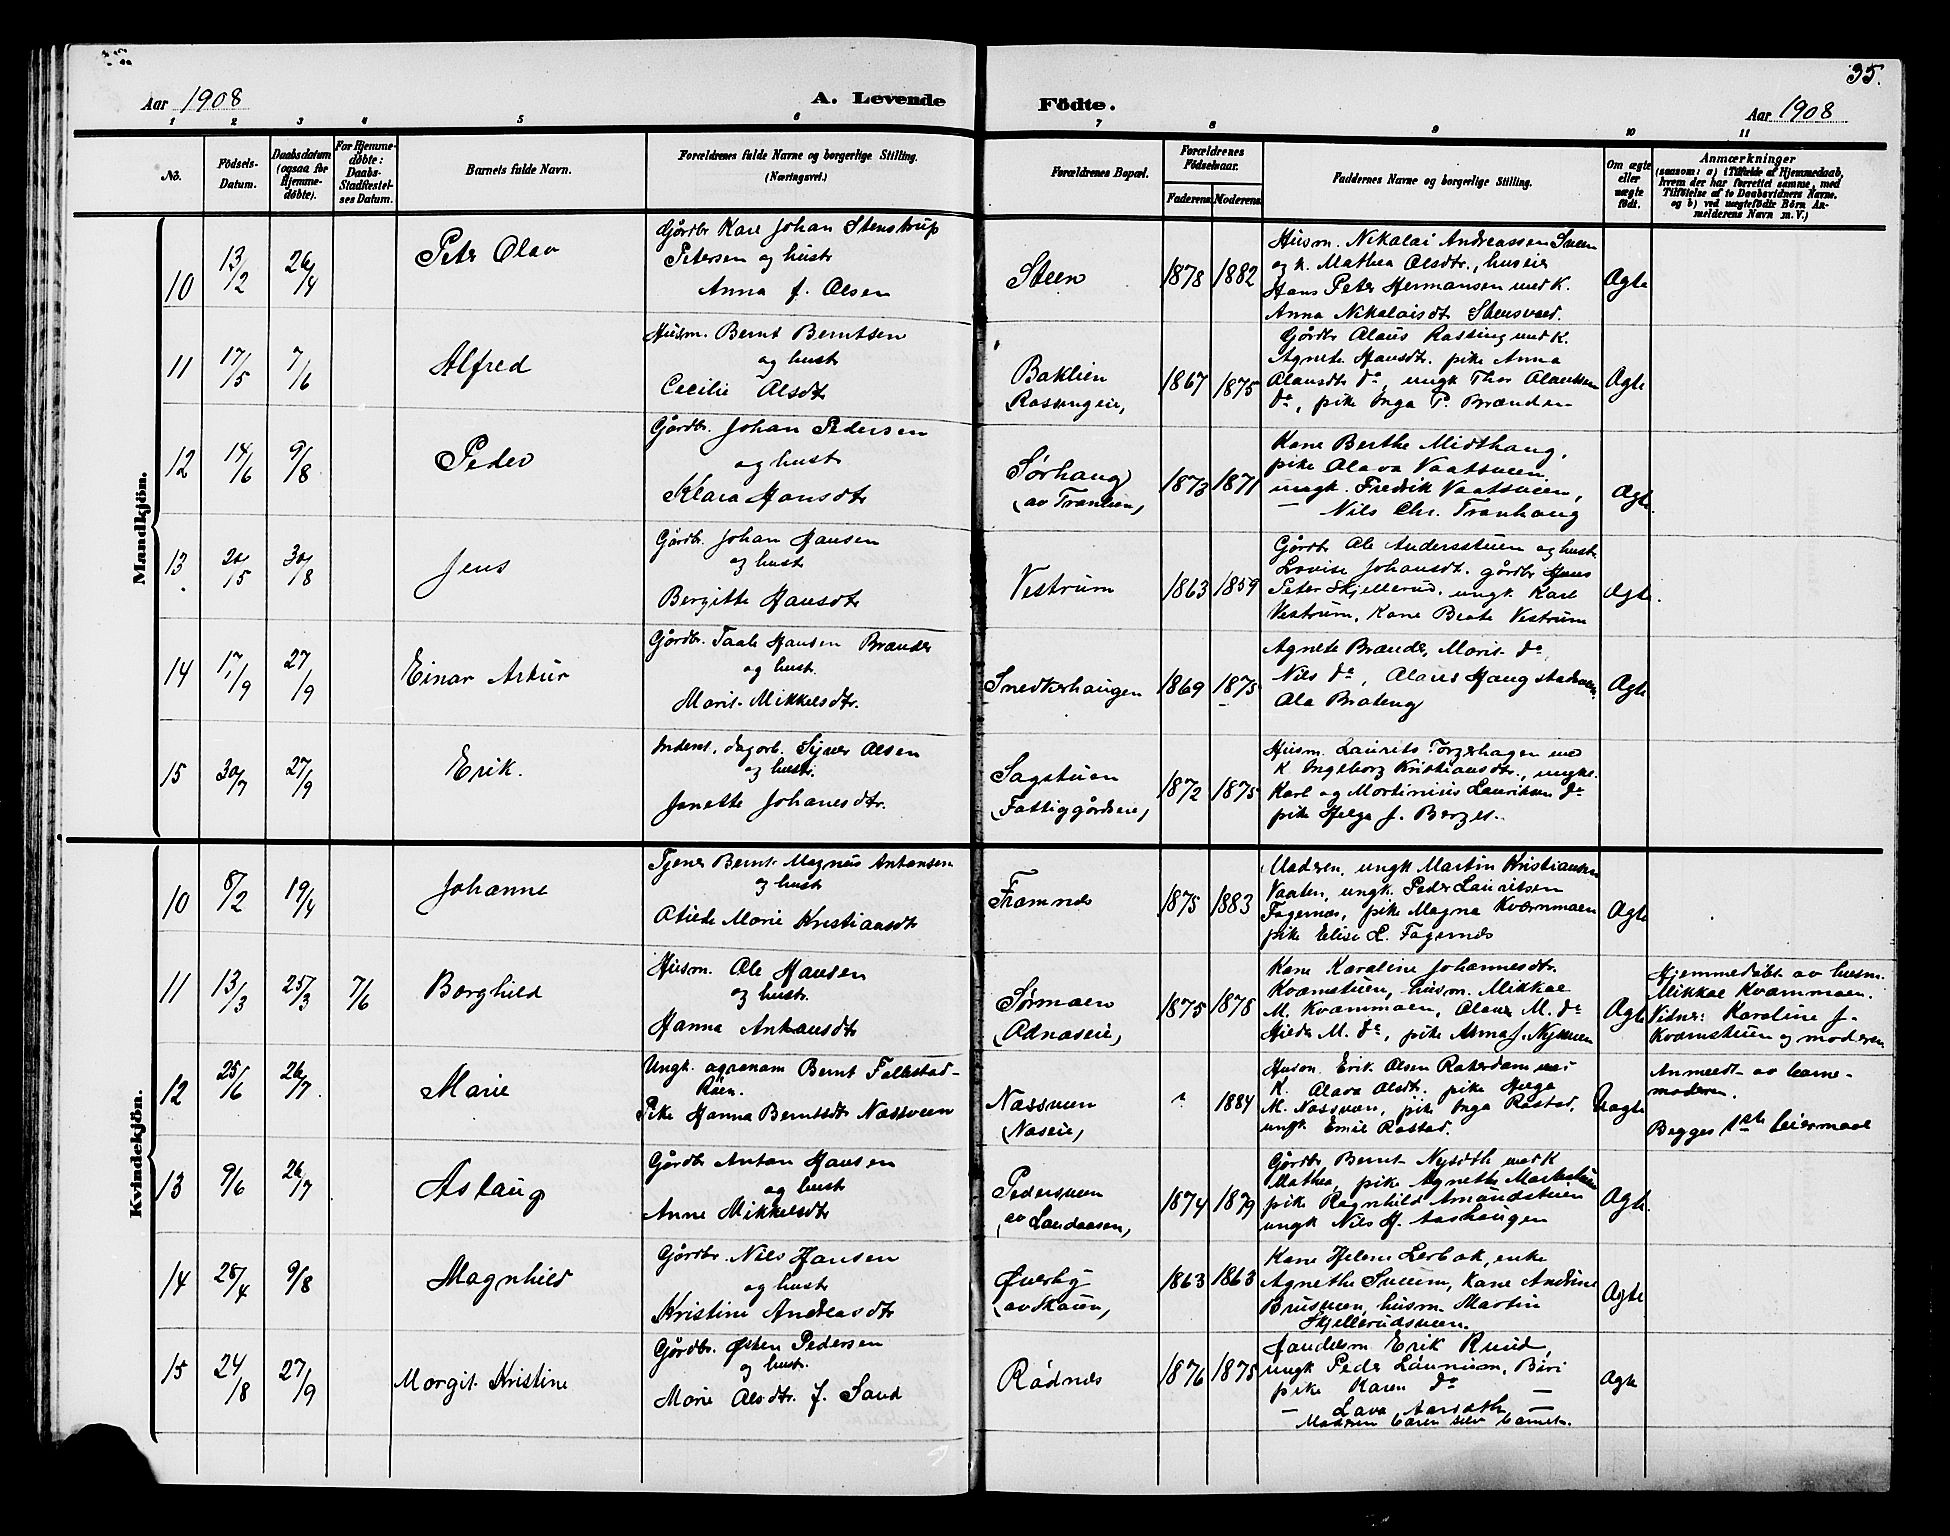 35.
Aar 1908
A. Levende
Födte.
Aar 1908
1 2 3 4 5 6 7 8 9 10 11
No.
Födsels-Datum.
Daabsdatum (ogsaa for Hjemmedøbte).
For Hjemmedøbte: Daabs-Stadfæstelses Datum.
Barnets fulde Navn.
Forældrenes fulde Navne og borgerlige Stilling. (Næringsvei.)
Forældrenes Bopæl.
Forældrenes Födselsaar.
Faderens. Moderens.
Faddernes Navne og borgerlige Stilling.
Om ægte eller uægte født.
Anmærkninger
(saasom: a) i Tilfælde af Hjemmedaab, hvem der har forrettet samme, med Tilføielse af to Daabsvidners Navne. og b) ved uægtefødte Börn Anmelderens Navn m. V.)
Mandkjön.
10 13/2 26/4 Peter Olav
Gårdbr Karl Johan Stenstrup
Petersen og hustr
Anna f. Olsen
Steen 1878 1882
Husm. Nikolai Andreassen Sveen
og k. Mathea Olsdtr., huseier
Hans Peter Hermansen med K.
Anna Nikolaisdt Stensveed.
Ægte
11 17/5 7/6 Alfred
Husm. Bernt Berntsen
og hust
Cecilie Olsdtr
Baklien
(Rossengeie,
1867 1875
Gårdbr Olaus Rossing med K.
Agnete Hansdtr. pike Anna
Olausdtr do, ungk Thor Olaussen
do, pike Inga P. Brænden
Ægte
12 14/6 9/8 Peder
Gårdbr. Johan Pedersen
og hustr
Klara Hansdtr
Sørhaug
(av Tranlien,
1873 1871
Kone Berthe Midthaug,
pike Olava Vaatsveen
ungk. Fredrik Vaatsveen,
— Nils Chr. Tranhaug
Ægte.
13 20/5 30/8 Jens
Gårdbr. Johan Hansen
og hustr
Bergitte Hansdtr
Vestrum 1863 1859
Gårdbr Ole Andersstuen og hustr
Lovise Johansdt. gårdbr Hans
Peter Skjellerud, ungk Karl
Vestrum, Kone Beate Vestrum
Ægte.
14 17/9 27/9 Einar Artur
Gårdbr. Taale Hansen Brænder
og hust.
Marit Mikkelsdtr.
Snedkerhaugen 1869 1875
Agnete Brænde, Marit do,
Nils do, Olaus Haugstadsveen
Ola Brateng
Ægte
15 30/7 27/9 Erik.
Inderst, dagarb. Syver Olsen
og hustr.
Janette Johanesdtr.
Sagstuen
(Fattiggårdseie,
1872 1875
Husm. Laurits Torgerhagen med
K Ingeborg Kristiansdtr., ungke.
Karl og Mortinius Lauritsen do
pike Helga J. Berget.
Kvindekjön.
10 8/2 19/4 Johanne
Tjener Bernt Magnus Antonsen
og hustr
Otilde Marie Kristiansdtr
Framnes 1875 1883
Moderen, ungk Martin Kristiansen
Vaaten, ungk. Peder Lauritsen
Fagernes, pike Magna Kværnmoen
pike Elise L. Fagernes
Ægte
11 13/3 25/3 7/6 Borghild
Husm. Ole Hansen
og hustr.
Hanna Antonsdtr
Sørmoen
(Odnæseie,
1875 1878
Kone Karoline Johannesdtr.
Kvæmstuen, husm. Mikkel
M. Kvæmmoen, Olaus M. do
Hilda M. do, pike Anna J. Nysveen
Ægte
Hjemmedøbt av husm.
Mikkel Kvæmmoen.
Vidner: Karoline J.
Kvæmstuen og moderen
12 25/6 26/7 Marie
Ungk. agronom Bernt Follestad-
Røen.
Pike Hanna Berntsdtr Næssveen
Næssveen
(Næseie,
? 1884
Husm. Erik Olsen Roterdam med
K. Olava Olsdt. pike Helga
M. Næssveen, pike Inga Rostad,
ungk Emil Rostad.
Uægte
Anmeldt av barne-
moderen.
Begges 1ste leiermaal
13 9/6 26/7 Aslaug
Gårdbr Anton Hansen
og hustr
Anne Mikkelsdtr
Pedersveen
(av Landaasen,
1874 1879
Gårdbr Bernt Nysæth med K
Mathea, pike Agnethe
pike Ragnhild Amundstuen
ungk Nils H. Aashaugen
Ægte.
14 28/4 9/8 Magnhild
Gårdbr. Nils Hansen
og hustr
Kristine Andreasdtr
Øverby
(av Skøien,
1863 1863
Kone Helene Lerbak, enke
Agnethe Sveum, Kone Andrine
Brusveen, husm. Martin
Skjellerudsveen.
Ægte
15 24/8 27/9 Margit Kristine
Gårdbr. Østen Pedersen
og hustr.
Marie Olsdtr. f. Sand
Rødnes 1876 1875
Handelsm. Erik Ruud,
ungk Peder Biri
pike Karen do —
— Lava —
Moderen bærer selv barnet.
Ægte